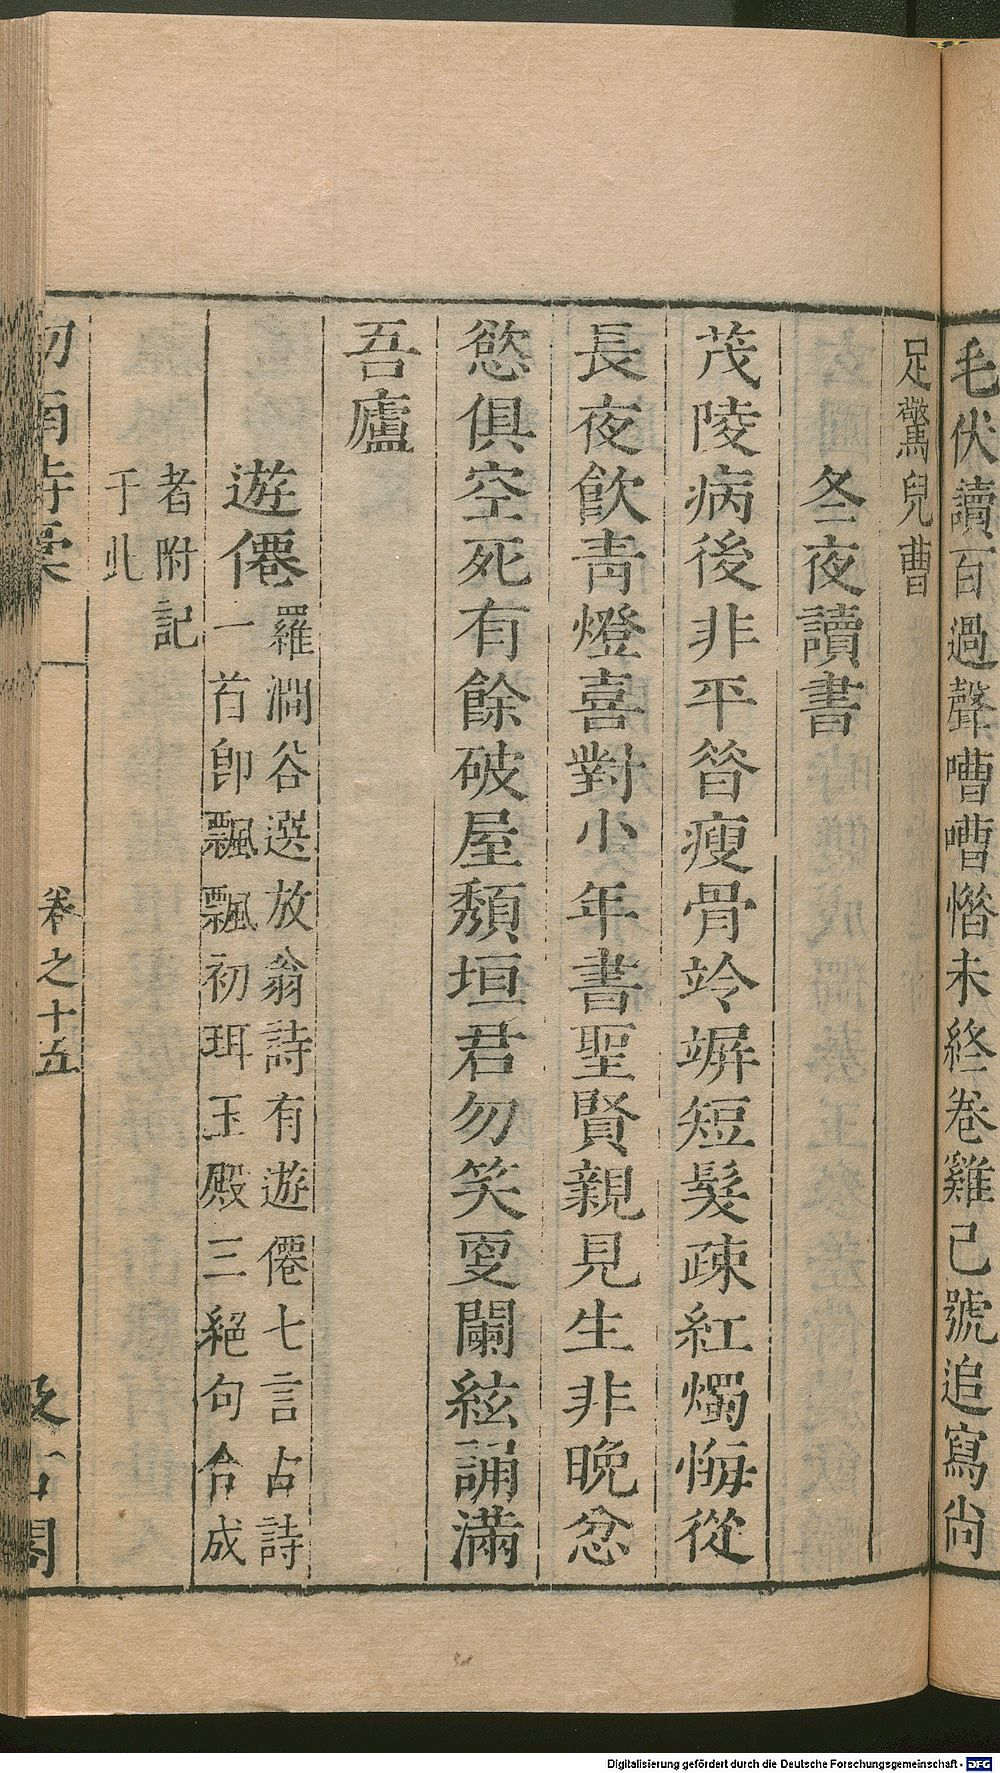 毛伏讀百過聲嘈嘈憯未終卷雞已號追寫尚
足驚兒曹
冬夜讀書
茂陵病後非平昔瘦骨竛竮短髮疎紅燭悔從
長夜飲青燈喜對小年書聖賢親見生非晚忿
慾俱空死有餘破屋頽垣君勿笑夏闌絃誦滿
吾廬
遊僊羅澗谷選放翁詩有遊僊七言古詩
一首卽飄飄初珥玉殿三絕句合成
者附記
于此
劒南詩稾
卷之十五
汲古閣
Digitalisierung gefördert durch die Deutsche Forschungsgemeinschaft - DFG